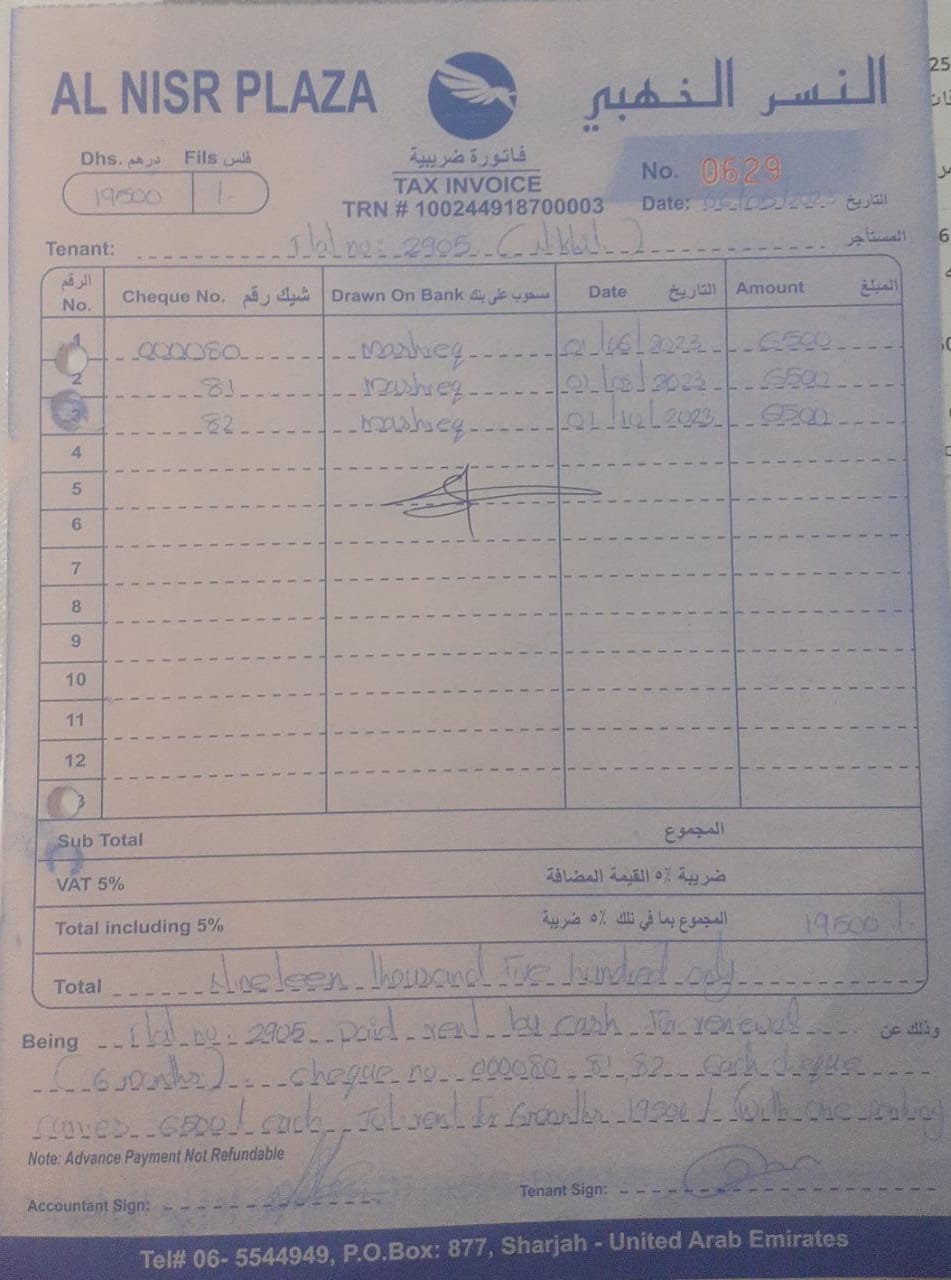 AL NISR PLAZA
النسر الذهبي
Dhs. درهم Fils فلس
19500 /-
فاتورة ضريبية
TAX INVOICE
TRN # 100244918700003
No. 0629
Date: 06/05/2023 التاريخ
Tenant: Flat no: 2905 المستأجر
الرقم No. Cheque No. شيك رقم Drawn On Bank مسحوب على بنك Date التاريخ Amount المبلغ
1 000080 Mashreq 01/06/2023 6500
2 81 Mashreq 01/08/2023 6500
3 82 Mashreq 01/10/2023 6500
4
5
6
7
8
9
10
11
12
Sub Total المجموع
VAT 5% ضريبة ٥% القيمة المضافة
Total including 5% المجموع بما في تلك ٥% ضريبة 19500 /-
Total Nineteen thousand Five hundred only
Being Flat no: 2905 paid rent by cash for renewal وذلك عن
(6 months) cheque no: 000080, 81, 82 each cheque
6500/ each Tot rent for 6 months 19500/- (with one parking
Note: Advance Payment Not Refundable
Accountant Sign: Tenant Sign:
Tel# 06- 5544949, P.O.Box: 877, Sharjah - United Arab Emirates